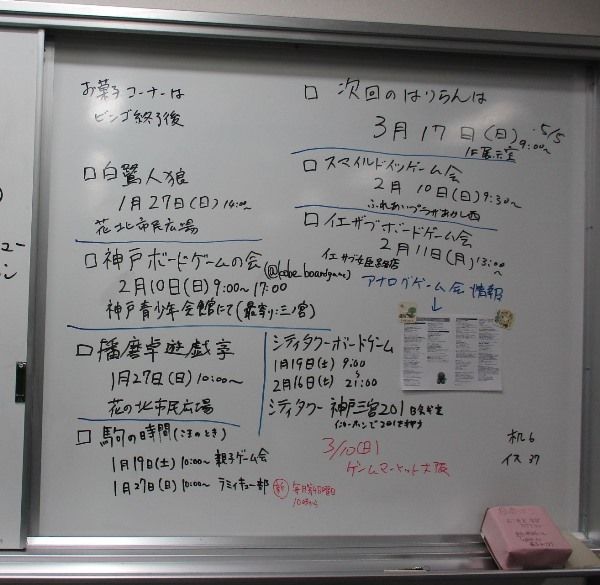 お菓子コーナーは
ビンゴ終了後
□ 白鷺人狼
1月27日(日)14:00~
花北市民広場
□ 神戸ボードゲームの会
(@kobe_boardgame)
2月10日(日)9:00~17:00
神戸青少年会館にて(最寄り:三ノ宮)
□ 播磨卓遊戯亭
1月27日(日)10:00~
花の北市民広場
□ 駒の時間(こまのとき)
1月19日(土)10:00~ 親子ゲーム会
1月27日(日)10:00~ ラミィキューブ部
新 毎月第4日曜日
10時から
□ 次回のはりらんは
3月17日(日) 5/5
1F展示室 9:00~
□ スマイルドイツゲーム会
2月10日(日)9:30~
ふれあいプラザあかし西
□ イエサブボードゲーム会
2月11日(月)13:00~
イエサブ姫路店
アナログゲーム会 情報
↓
シティタワーボードゲーム
1月19日(土) 9:00
2月16日(土) 21:00
シティタワー神戸三宮201
インターホンで201を押す
3/10(日)
ゲームマーケット大阪
机6
イス37